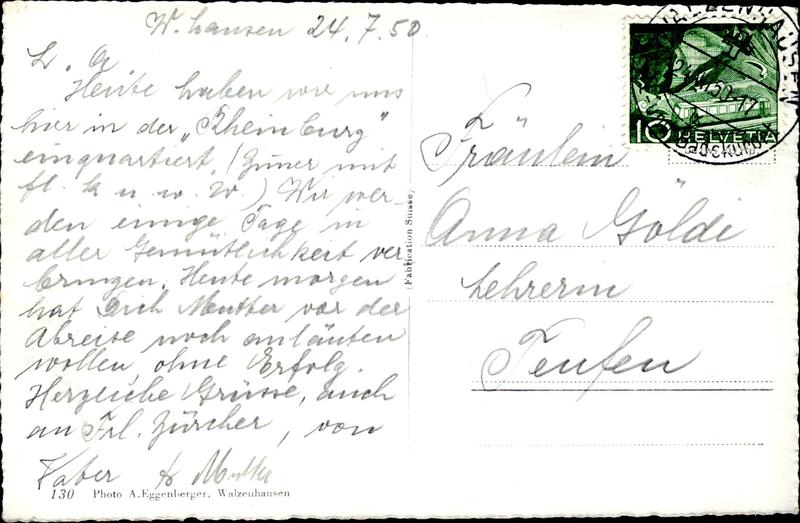 W.hausen 24.7.50
L. A.
Heute haben wir uns
hier in der „Rheinburg"
einquartiert. (Zimer mit
fl. k u. w. W.) Wir wer-
den einige Tage in
aller Gemütlichkeit ver
bringen. Heute morgen
hat Dich Mutter vor der
Abreise noch anläuten
wollen, ohne Erfolg.
Herzliche Grüsse, auch
an Frl. Zürcher, von
Vater & Mutter
130 Photo A.Eggenberger, Walzenhausen
(Fabrication Suisse)
WALZENHAUSEN
10 HELVETIA
Fräulein
Anna Göldi
Lehrerin
Teufen